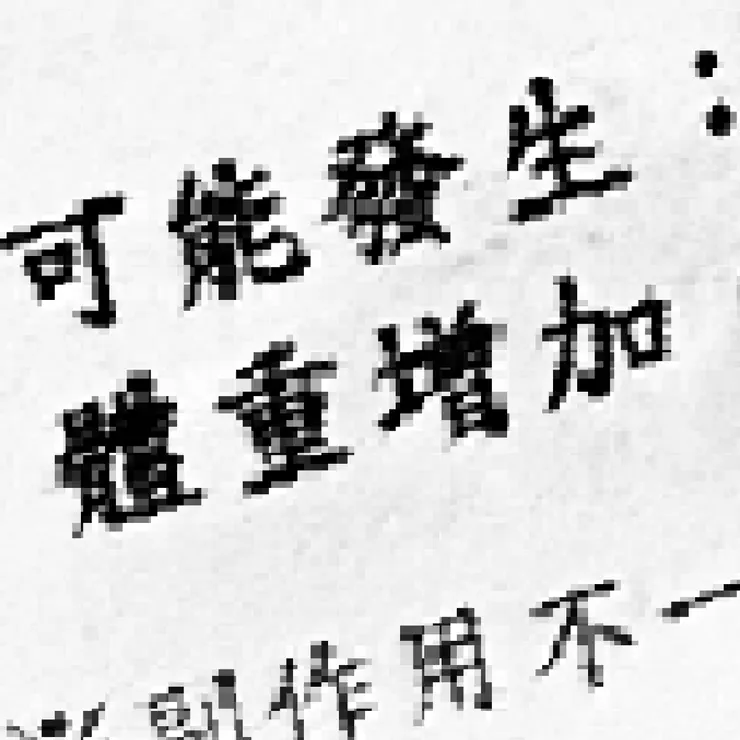 可能發生:
體重增加
副作用不一